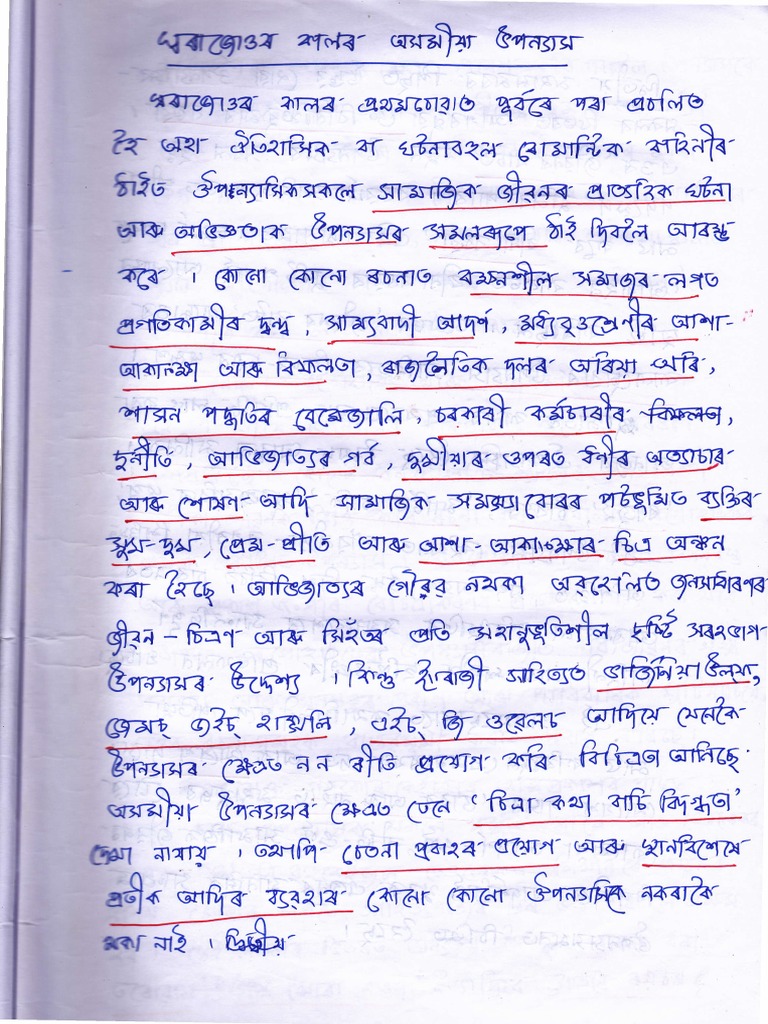 স্বৰাজোত্তৰ কালৰ অসমীয়া উপন্যাস
স্বৰাজোত্তৰ কালৰ প্ৰথমছোৱাত পূৰ্বৰে পৰা প্ৰচলিত
হৈ অহা ঐতিহাসিক বা ঘটনাবহুল ৰোমান্টিক কাহিনীৰ
ঠাইত ঔপন্যাসিকসকলে সামাজিক জীৱনৰ প্ৰাত্যহিক ঘটনা
আৰু অভিজ্ঞতাক উপন্যাসৰ সমলৰূপে ঠাই দিবলৈ আৰম্ভ
কৰে । কোনো কোনো ৰচনাত ৰক্ষনশীল সমাজৰ লগত
প্ৰগতিকামীৰ দ্বন্দ্ব , সাম্যবাদী আদৰ্শ , মধ্যবৃত্তশ্ৰেণীৰ আশা-
আকাংক্ষা আৰু বিফলতা , ৰাজনৈতিক দলৰ অৰিয়া অৰি ,
শাসন পদ্ধতিৰ বেমেজালি , চৰকাৰী কৰ্মচাৰীৰ বিফলতা ,
দুৰ্নীতি , আভিজাত্যৰ গৰ্ব , দুখীয়াৰ ওপৰত ধনীৰ অত্যাচাৰ
আৰু শোষণ আদি সামাজিক সমস্যাবোৰৰ পটভূমিত ব্যক্তিৰ
সুখ-দুখ , প্ৰেম-প্ৰীতি আৰু আশা-আকাংক্ষাৰ চিত্ৰ অঙ্কন
কৰা হৈছে । আভিজাত্যৰ গৌৰৱ নথকা অৱহেলিত জনসাধাৰণৰ
জীৱন-চিত্ৰণ আৰু সিহঁতৰ প্ৰতি সহানুভূতিশীল দৃষ্টি সৰহভাগ
উপন্যাসৰ উদ্দেশ্য । কিন্তু ইংৰাজী সাহিত্যত ভাৰ্জিনিয়া উল্ফ,
জেমছ্ জইচ্ হাক্সলি , এইচ্ জি ওৱেলচ আদিয়ে যেনেকৈ
উপন্যাসৰ ক্ষেত্ৰত নন ৰীতি প্ৰয়োগ কৰি বিচিত্ৰতা আনিছে
অসমীয়া উপন্যাসৰ ক্ষেত্ৰত তেনে 'চিত্ৰা কথা বাচি বিদগ্ধতা'
দেখা নাযায় । তথাপি চেতনা প্ৰবাহৰ প্ৰয়োগ আৰু স্থানবিশেষে
প্ৰতীক আদিৰ ব্যৱহাৰ কোনো কোনো ঔপন্যাসিকে নকৰাকৈ
থকা নাই । দ্বিতীয়